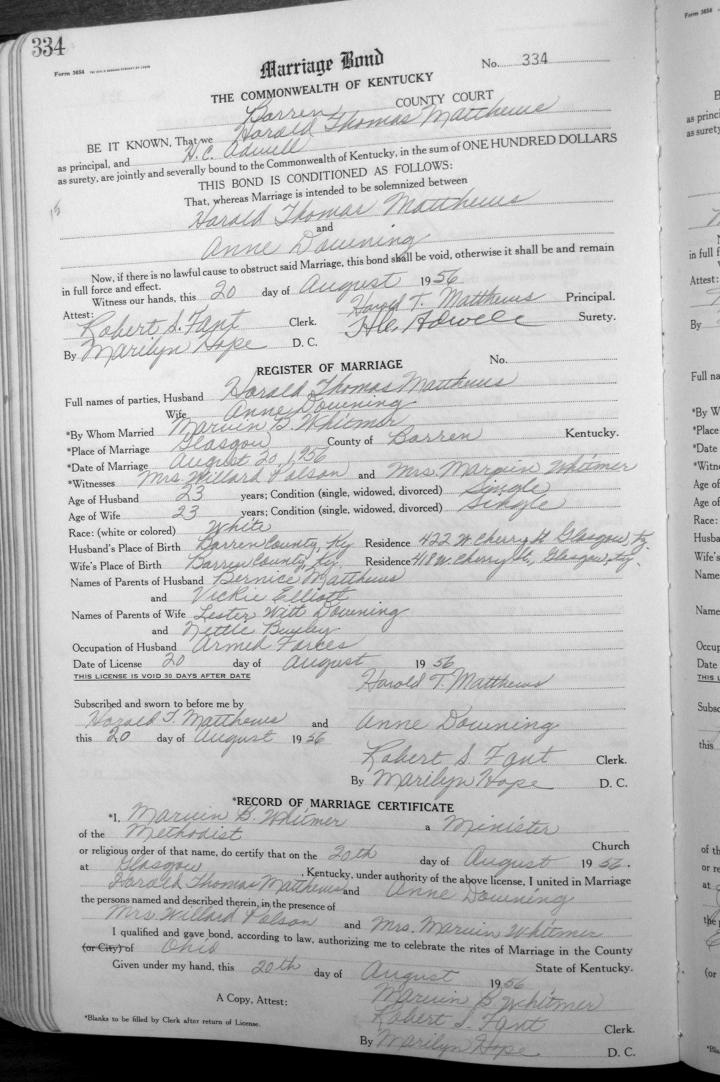 334
Form 3654
Marriage Bond No. 334
THE COMMONWEALTH OF KENTUCKY
Barren COUNTY COURT
BE IT KNOWN, That we Harold Thomas Matthews
as principal, and H.C. Adwell
as surety, are jointly and severally bound to the Commonwealth of Kentucky, in the sum of ONE HUNDRED DOLLARS
THIS BOND IS CONDITIONED AS FOLLOWS:
That, whereas Marriage is intended to be solemnized between
Harold Thomas Matthews
and
Anne Downing
Now, if there is no lawful cause to obstruct said Marriage, this bond shall be void, otherwise it shall be and remain
in full force and effect.
Witness our hands, this 20 day of August 1956
Attest: Harold T. Matthews Principal.
Robert S. Fant Clerk. H.C. Adwell Surety.
By Marilyn Hope D. C.
REGISTER OF MARRIAGE No.
Full names of parties, Husband Harold Thomas Matthews
Wife Anne Downing
*By Whom Married Marvin B. Whitmer
*Place of Marriage Glasgow County of Barren Kentucky.
*Date of Marriage August 20, 1956
*Witnesses Mrs. Willard Polson and Mrs. Marvin Whitmer
Age of Husband 23 years; Condition (single, widowed, divorced) Single
Age of Wife 23 years; Condition (single, widowed, divorced) Single
Race: (white or colored) White
Husband's Place of Birth Barren County, Ky Residence 422 W. Cherry St Glasgow, Ky.
Wife's Place of Birth Barren County, Ky. Residence 418 W. Cherry St., Glasgow, Ky.
Names of Parents of Husband Bernice Matthews
and Vickie Elliott
Names of Parents of Wife Lester Witt Downing
and Nettie
Occupation of Husband Armed Forces
Date of License 20 day of August 1956
THIS LICENSE IS VOID 30 DAYS AFTER DATE
Harold T. Matthews
Subscribed and sworn to before me by
Harold T. Matthews and Anne Downing
this 20 day of August 1956
Robert S. Fant Clerk.
By Marilyn Hope D. C.
*RECORD OF MARRIAGE CERTIFICATE
*I, Marvin B. Whitmer a Minister
of the Methodist Church
or religious order of that name, do certify that on the 20th day of August 1956.
at Glasgow, Kentucky, under authority of the above license, I united in Marriage
Harold Thomas Matthews and Anne Downing
the persons named and described therein, in the presence of
Mrs. Willard Polson and Mrs. Marvin Whitmer
I qualified and gave bond, according to law, authorizing me to celebrate the rites of Marriage in the County
(or City) of Ohio State of Kentucky.
Given under my hand, this 20th day of August 1956
Marvin B. Whitmer
A Copy, Attest: Robert S. Fant Clerk.
*Blanks to be filled by Clerk after return of License.
By Marilyn Hope D. C.